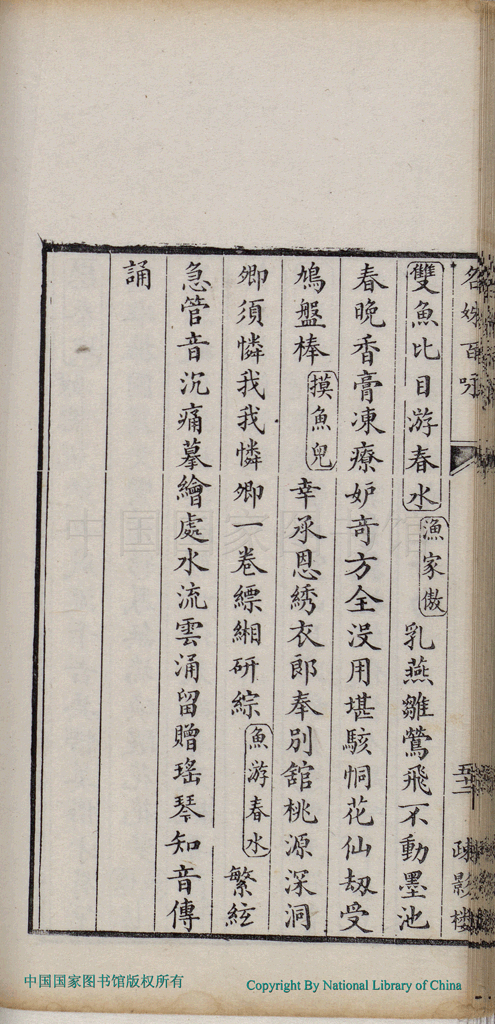 名姝百咏
五十二
疎影楼
雙魚比目游春水漁家傲乳燕雛鶯飛不動墨池
春晚香膏凍療妒奇方全没用堪駭恫花仙刼受
鳩盤棒摸魚兒幸承恩綉衣郎奉別舘桃源深洞
卿須憐我我憐卿一卷縹緗研綜魚游春水繁絃
急管音沉痛摹繪處水流雲涌留贈瑤琴知音傳
誦
中国国家图书馆
中国国家图书馆版权所有
Copyright By National Library of China